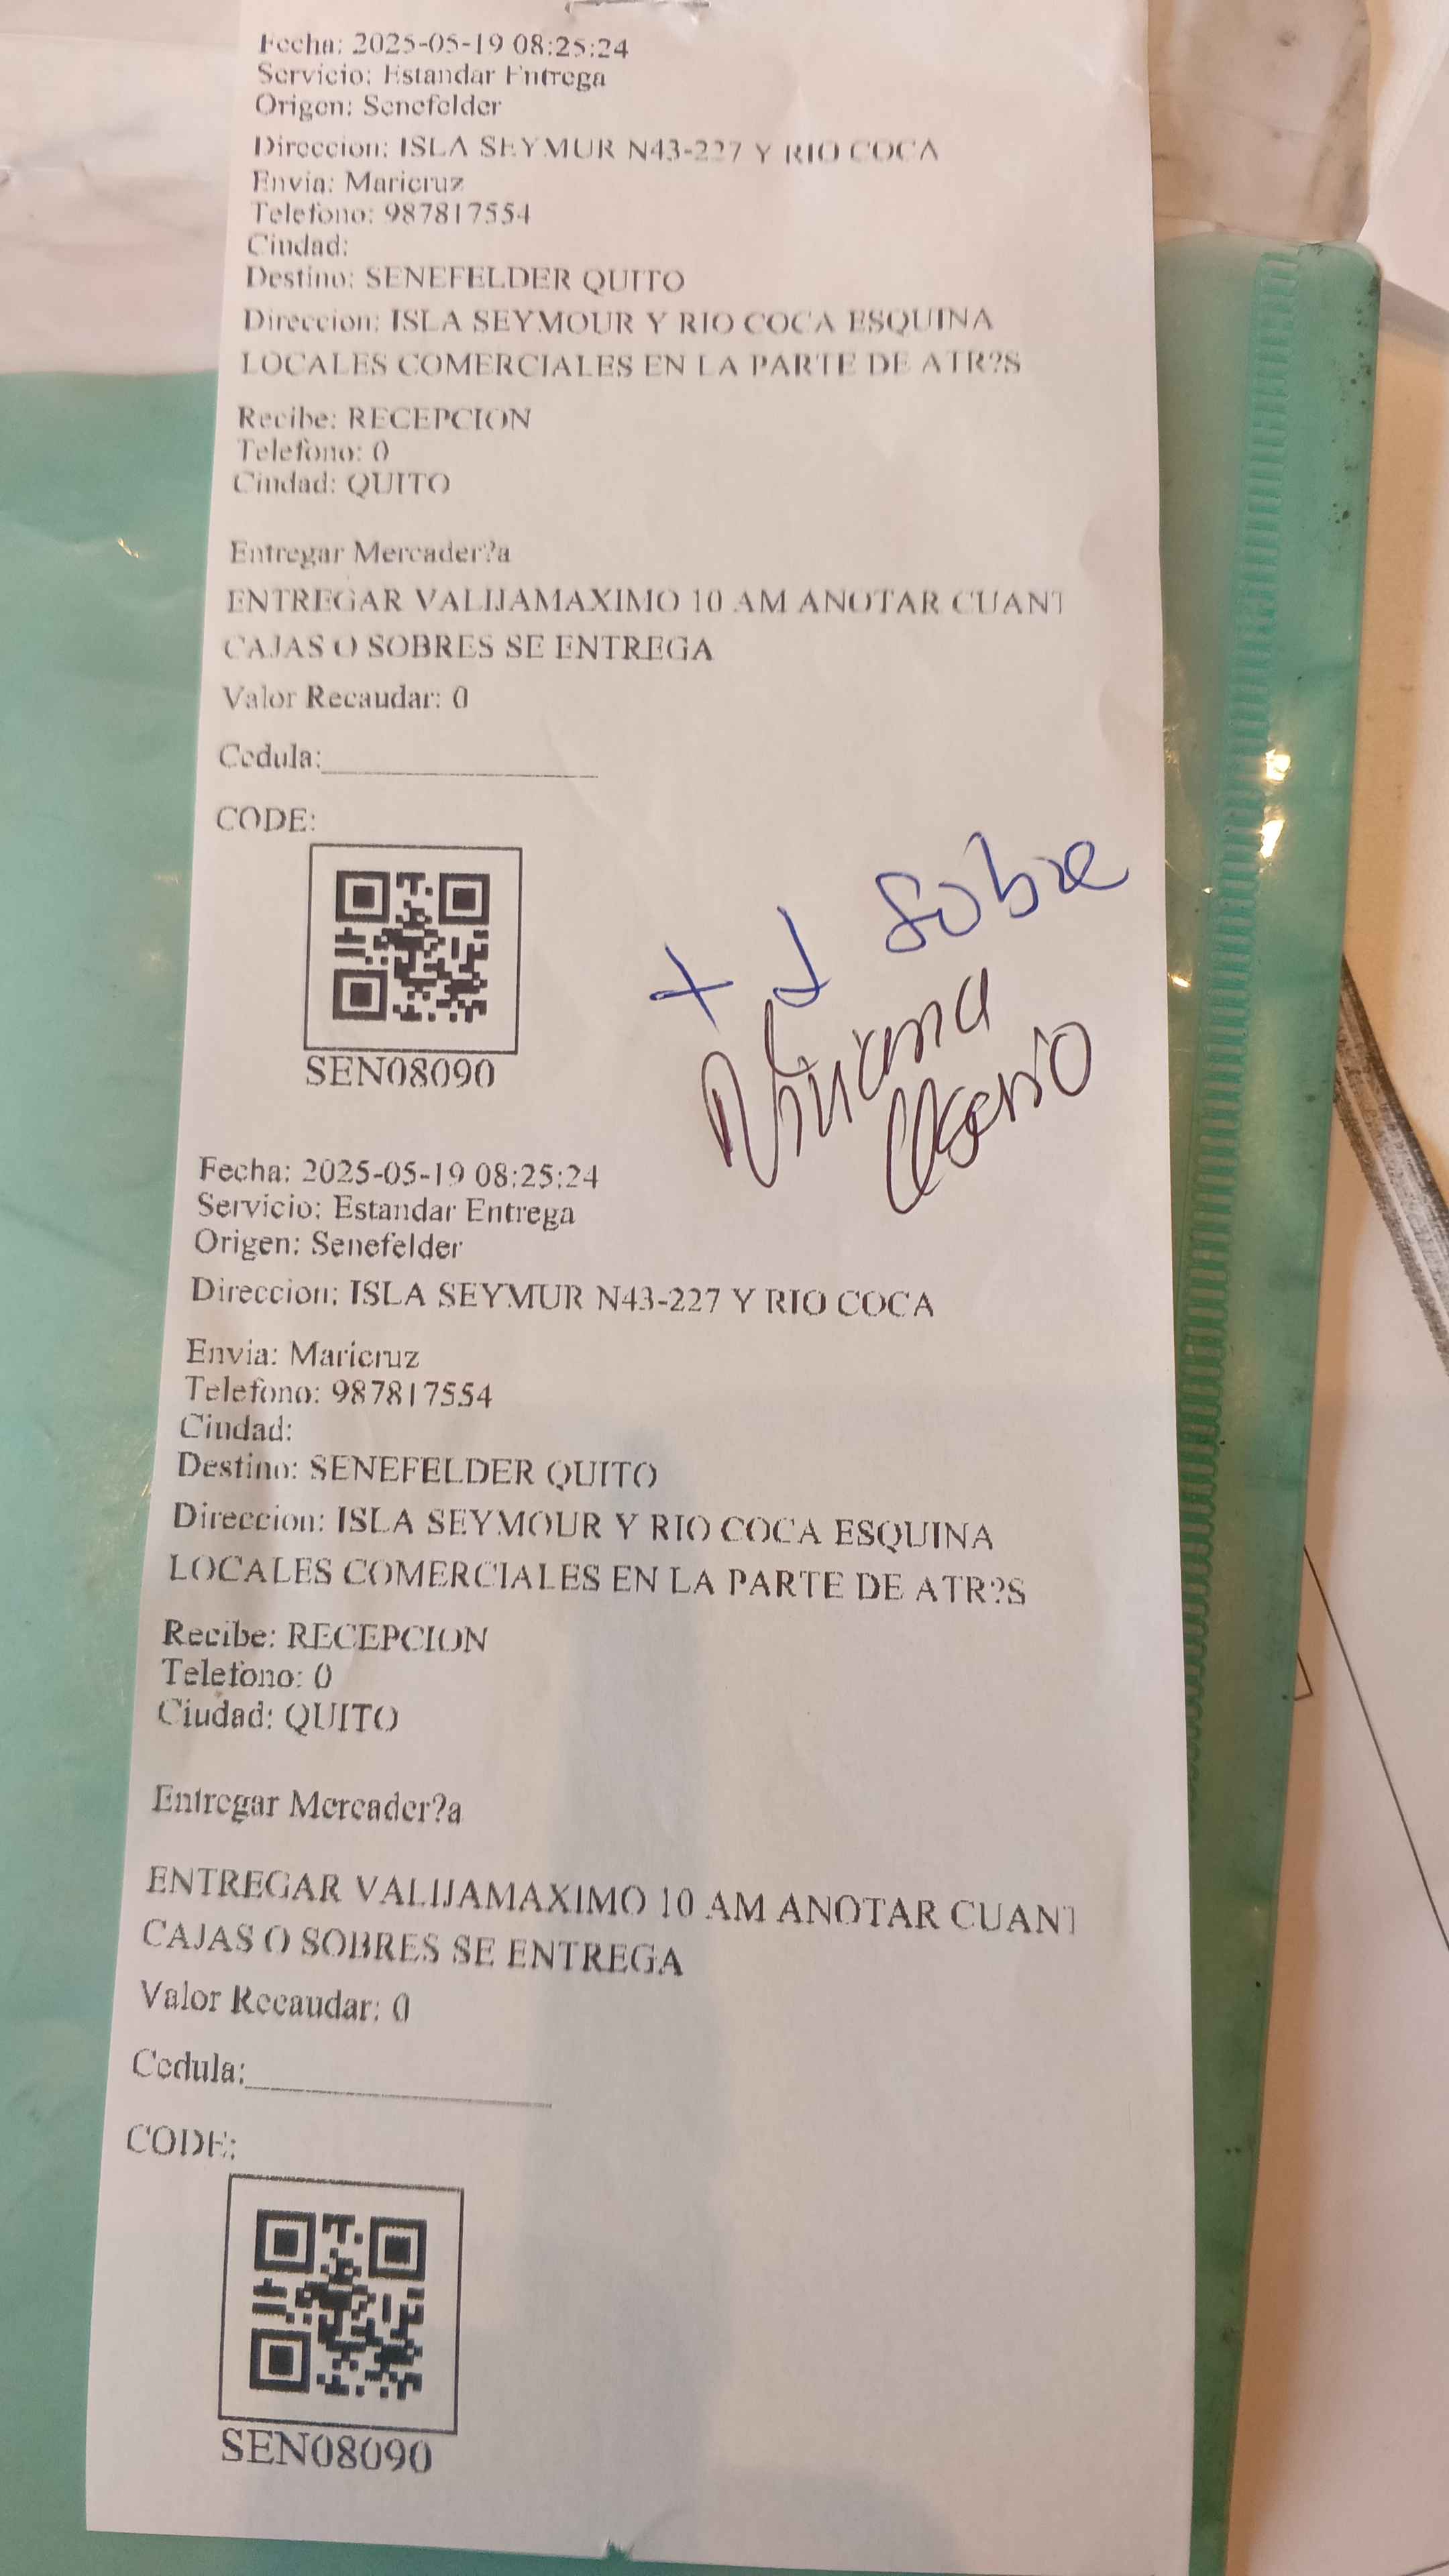 Fecha: 2025-05-19 08:25:24
Servicio: Estandar Entrega
Origen: Senefelder
Direccion: ISLA SEYMUR N43-227 Y RIO COCA
Envia: Maricruz
Telefono: 987817554
Ciudad:
Destino: SENEFELDER QUITO
Direccion: ISLA SEYMOUR Y RIO COCA ESQUINA
LOCALES COMERCIALES EN LA PARTE DE ATR?S
Recibe: RECEPCION
Telefono: 0
Ciudad: QUITO
Entregar Mercader?a
ENTREGAR VALIJAMAXIMO 10 AM ANOTAR CUANT
CAJAS O SOBRES SE ENTREGA
Valor Recaudar: 0
Cedula:
CODE:
+ 1 Sobre
Viviana
SEN08090
Fecha: 2025-05-19 08:25:24
Servicio: Estandar Entrega
Origen: Senefelder
Direccion: ISLA SEYMUR N43-227 Y RIO COCA
Envia: Maricruz
Telefono: 987817554
Ciudad:
Destino: SENEFELDER QUITO
Direccion: ISLA SEYMOUR Y RIO COCA ESQUINA
LOCALES COMERCIALES EN LA PARTE DE ATR?S
Recibe: RECEPCION
Telefono: 0
Ciudad: QUITO
Entregar Mercader?a
ENTREGAR VALIJAMAXIMO 10 AM ANOTAR CUANT
CAJAS O SOBRES SE ENTREGA
Valor Recaudar: 0
Cedula:
CODE:
SEN08090